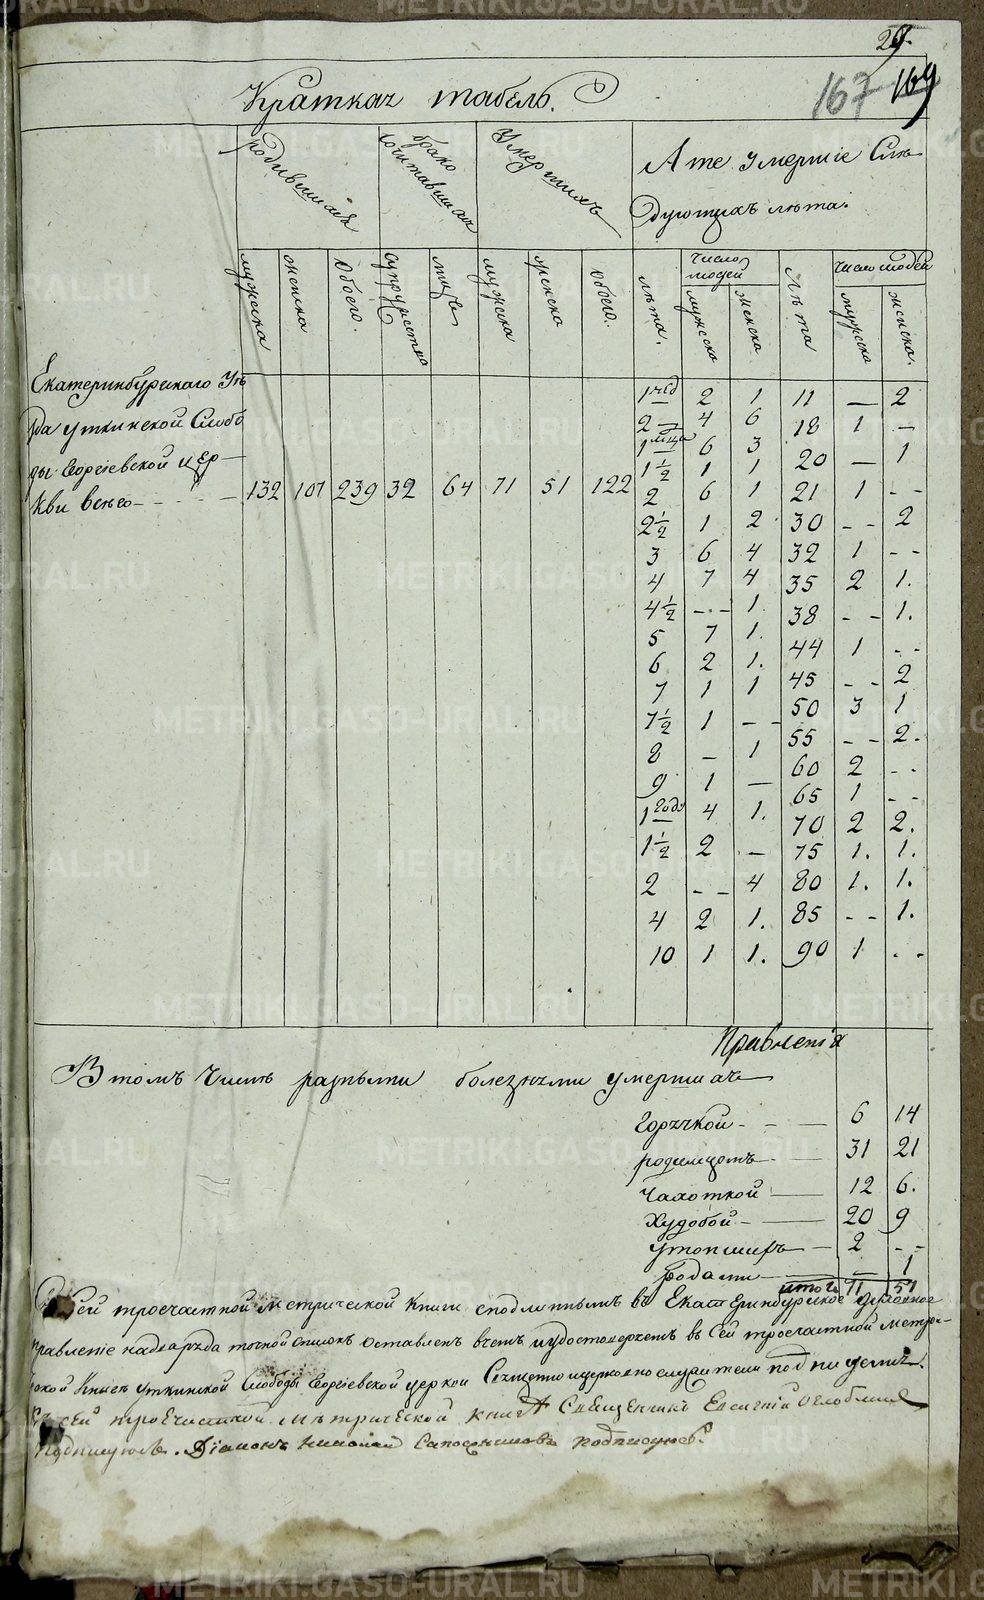 29.
167 169
Краткая табель.
родившихся
брако
сочитавшихся
Умершихъ
А те умершіе Слѣ
дующихъ лѣта.
мужеска
женска
Обоего.
супружество
лице
мужеска
женска
обоего.
лѣта.
число
людей
мужеска
женска
Лѣта
число людей
мужеска
женска.
Екатеринбурскаго Уѣ
зда уткинской Слобо
ды Георгіевской цер-
кви всего - - - - 132 107 239 32 64 71 51 122
1 нед 2 1 11 — 2
2 — 4 6 18 1 —
1 мца 6 3 20 — 1
1 1/2 1 1 21 1 - -
2 6 1 30 - - 2
2 1/2 1 2 32 1 - -
3 6 4 35 2 1.
4 7 4 38 - - 1.
4 1/2 - - 1. 44 1 - -
5 7 1. 45 - - 2
6 2 1. 50 3 1
7 1 1 55 - - 2.
7 1/2 1 - - 60 2 - -
8 — 1 65 1 - -
9 1 — 70 2 2.
1 года 4 1. 75 1. 1.
1 1/2 2 — 80 1. 1.
2 - - 4 85 - - 1.
4 2 1. 90 1 - -
10 1 1.
Правленія
В томъ Числѣ разными болезньми умершихъ
Горячкой - - — 6 14
родимцомъ — 31 21
Чахоткой — 12 6.
Худобой - — 20 9
утопшихъ — 2 - -
родами — — 1
итого 71 51
Сей троечастной метрической Книги сподлиннымъ въ Екатеринбурское духовное
правленіе точной список Оставленъ в сей троечастной метри-
ческой Книге уткинской Слободы Георгіевской церкви Священно и церковно служители подписуемся.
К сей троечастной мѣтрической книге Священникъ Евгений
подписуюсь. Діаконъ Николай Сапожниковъ подписуюсь.